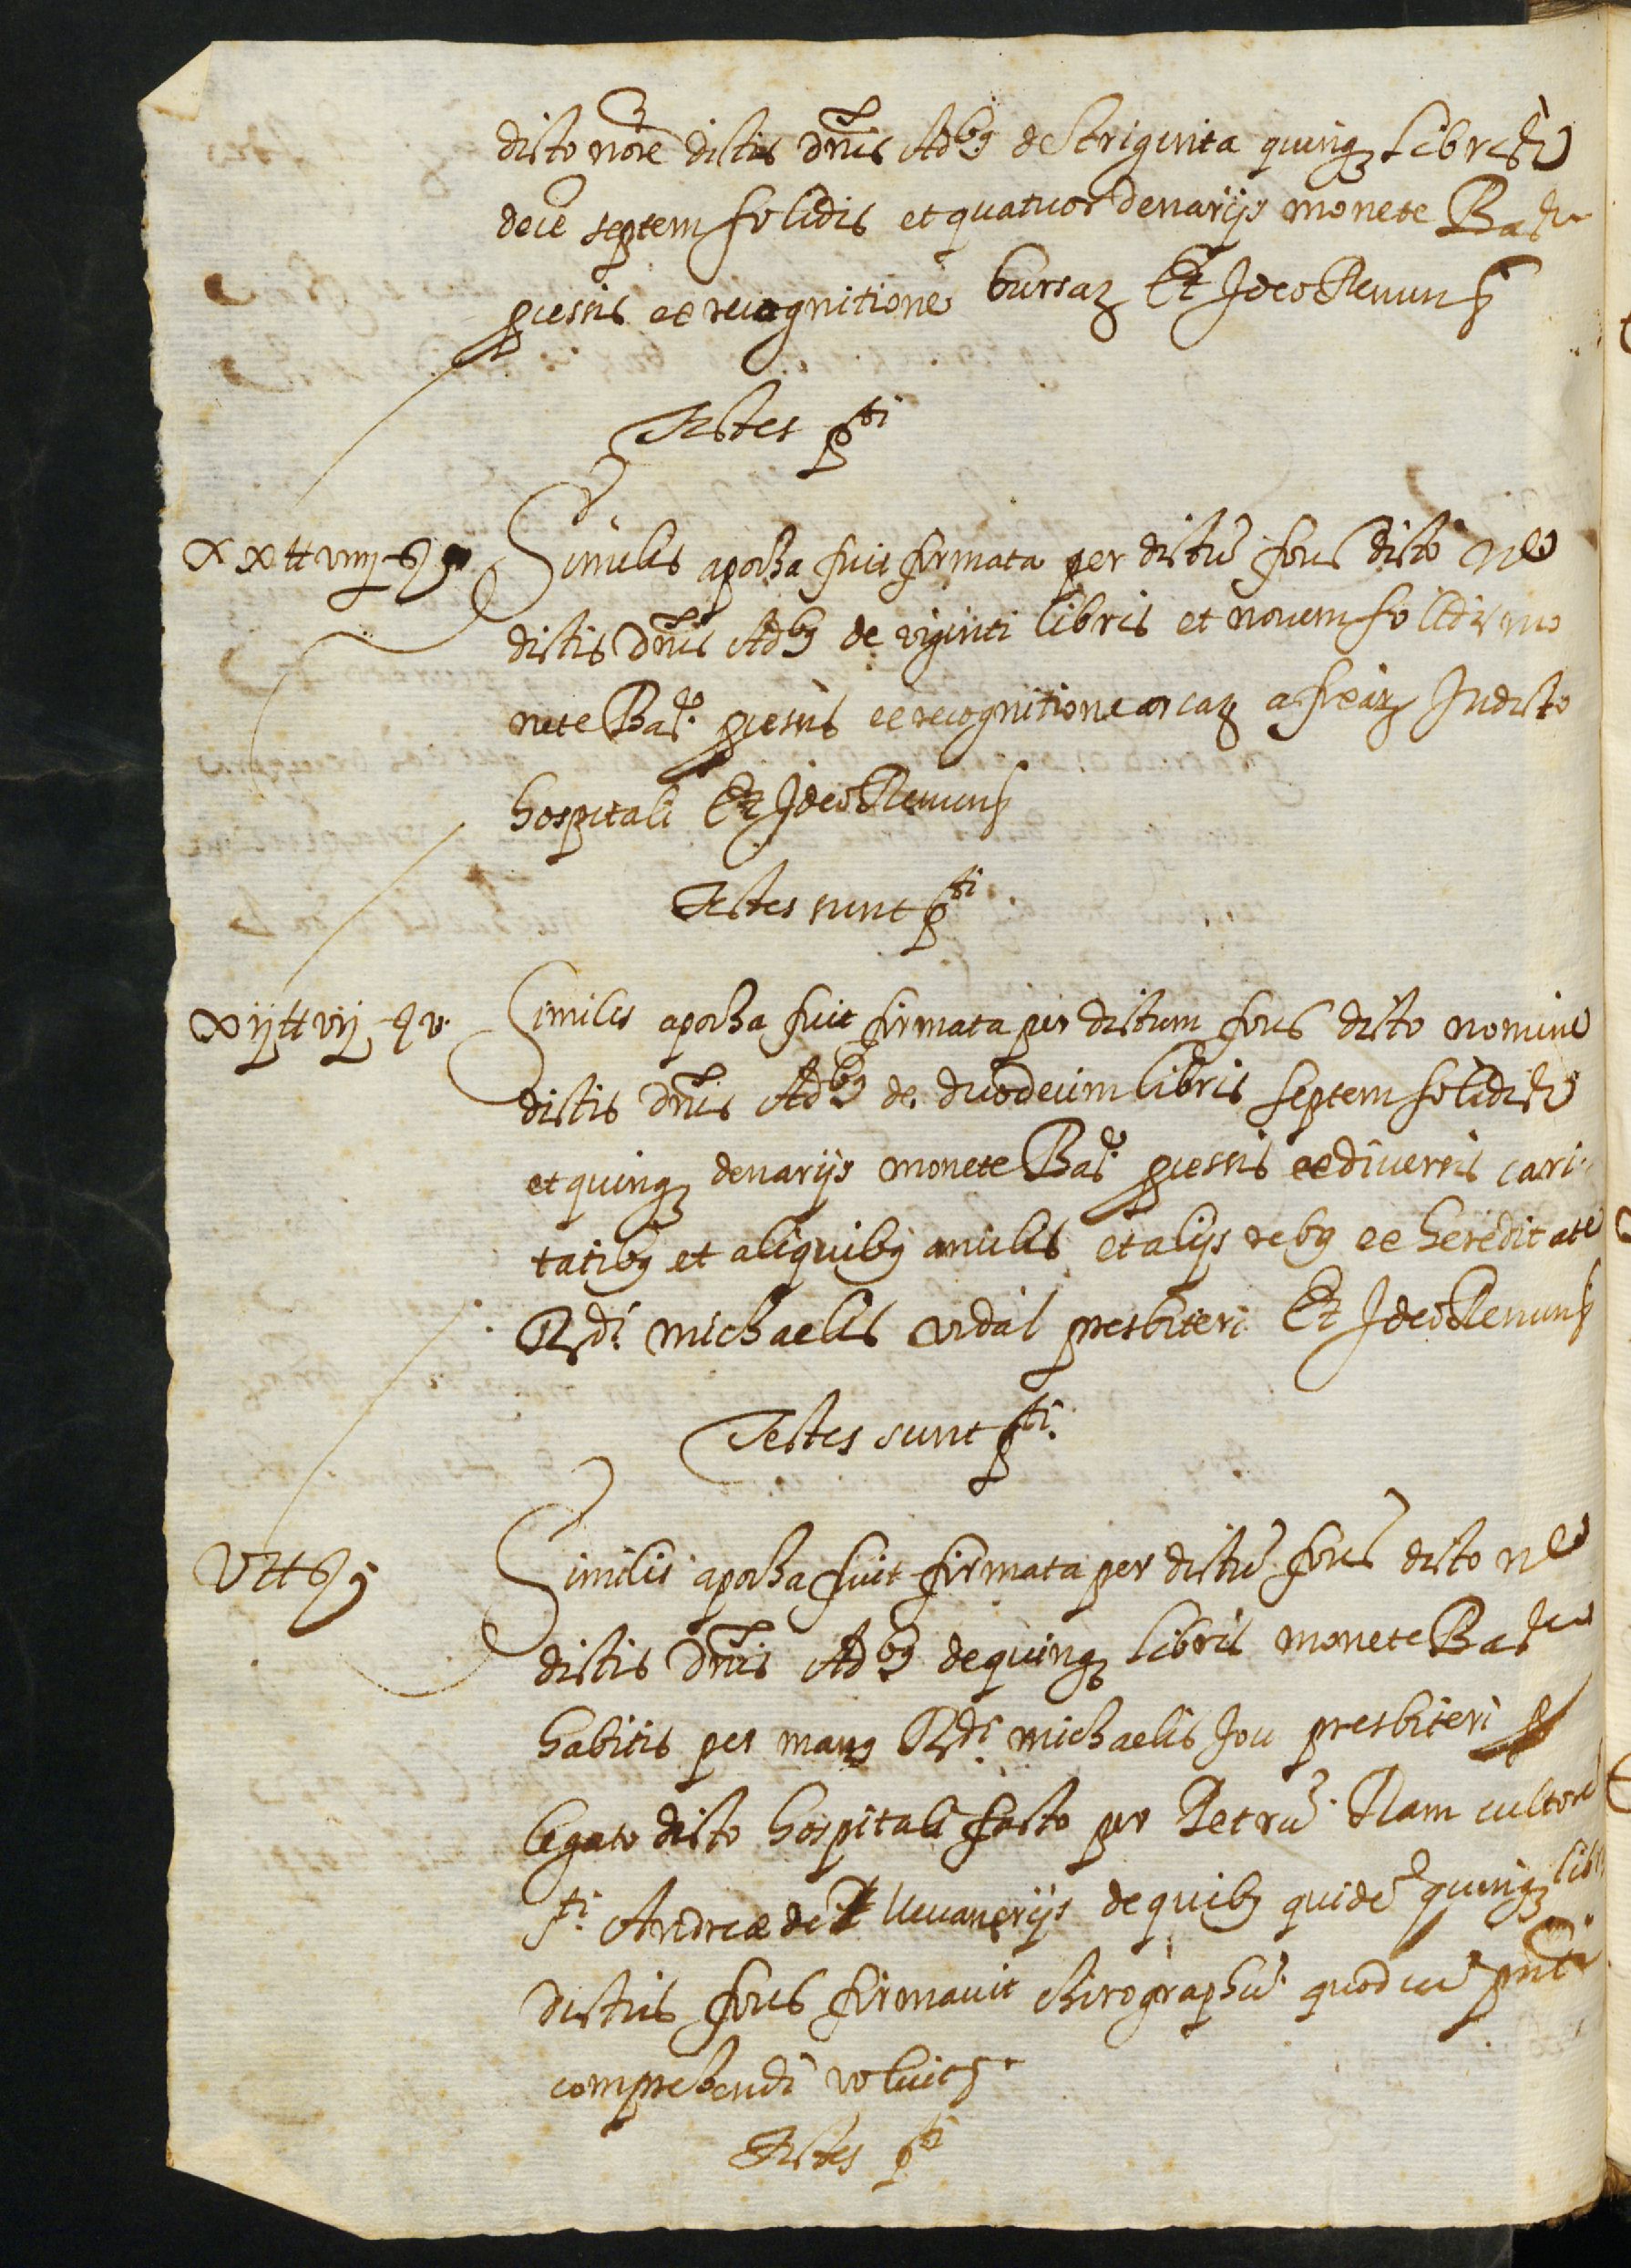 dicto noïe dictis dnis Adbꝰ de Triginta quinqꝫ libris
dece septem solidis et quatuor denarijs monete Barne
pcessis ex recognitione bursaꝝ Et Ideo Renuns
Testes pti
XX tt viiij s
Similis apocha fuit firmata per dictu fons dicto noe
dictis dnis Adbꝰ de viginti libris et novem solidis mo
nete Bare pcessis ex recognitione arcaꝝ In dicto
hospitali Et Ideo Renuns
Testes sunt pti
Xij tt vij s v
Similis apocha fuit firmata per dictum fons dicto nomine
dictis dnis Adbꝰ de duodecim libris septem solidis
et quinqꝫ denarijs monete Bare pcessis ex diversis cari
tatibꝰ et aliquibꝰ anulis et alijs rebꝰ ex hereditate
Rdi michaelis vidal presbiteri Et Ideo Renuns
Testes sunt pti
V tt s
Similis apocha fuit firmata per dictu fons dicto noe
dictis dnis Adbꝰ de quinqꝫ libris monete Barne
habitis per manꝰ Rdi michaelis Jou presbiteri p
legato dicto hospitali facto per Petru Ram cultore
sti Andreæ de llevaneriis de quibꝰ quide quinqꝫ libris
dictus fons firmavit chirographu quod cu pnti
comprehendi voluit
Testes pti